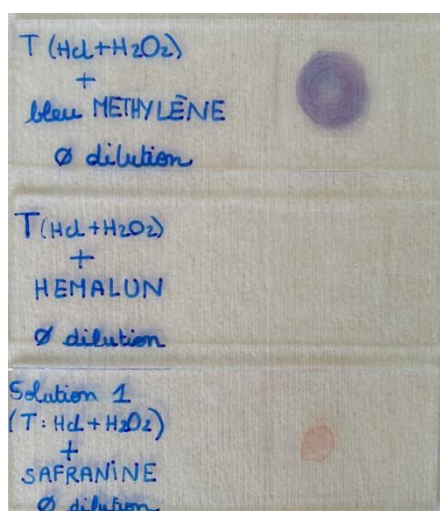 T (Hcl+H2O2)
+
bleu METHYLÈNE
Ø dilution
T(Hcl+H2O2)
+
HEMALUN
Ø dilution
Solution 1
(T: Hcl+H2O2)
+
SAFRANINE
Ø dilution